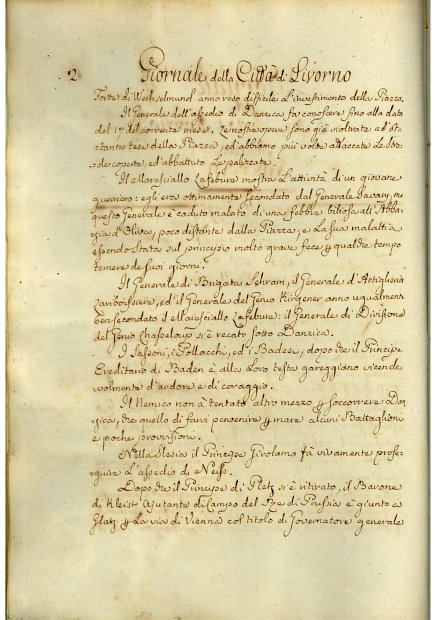 2. Giornale della Città di Livorno
Forte di Wechselmund anno reso difficile L'investimento della Piazza.
Il Generale dell'assedio di Danzica fa conoscere sino alla data
del 17 del corrente mese. Le nostre opere sono già inoltrate ad ot-
tanta tese della Piazza, ed abbiamo più volte attaccata la stra-
da coperta, ed abbattute Le palizzate.
Il Maresciallo Lafebure mostra L'attività di un giovane
guerriero: egli era ottimamente secondato dal Generale Savary, ma
questo Generale è caduto malato di una febbre biliosa all'Abba-
zia d'Oliva, poco distante dalla Piazza, e La sua malattia
essendo stata sul principio molto grave fece p qualche tempo
temere de suoi giorni.
Il Generale di Brigata Schram, il Generale d'Artiglieria
Lariboissiere, ed il Generale del Genio Kirgener anno ugualmente
ben secondato il Maresciallo Lafebure: il Generale di Divisione
del Genio Chasseloup si è recato sotto Danzica.
I Sassoni, i Pollacchi, ed i Badesi, dopo che il Principe
Ereditario di Baden è alla Loro testa gareggiano vicende-
volmente d'ardore e di coraggio.
Il Nemico non à tentato altro mezzo p soccorrere Dan-
zica, che quello di farvi pervenire p mare alcuni Battaglioni
e poche provvisioni.
Nella Slesia il Principe Girolamo fà vivamente prose-
guire L'assedio di Neiss.
Dopo che il Principe di Pletz si è ritirato, il Barone
di Kleist Ajutante di Campo del Re di Prussia è giunto a
Glatz p La via di Vienna col titolo di Governatore generale